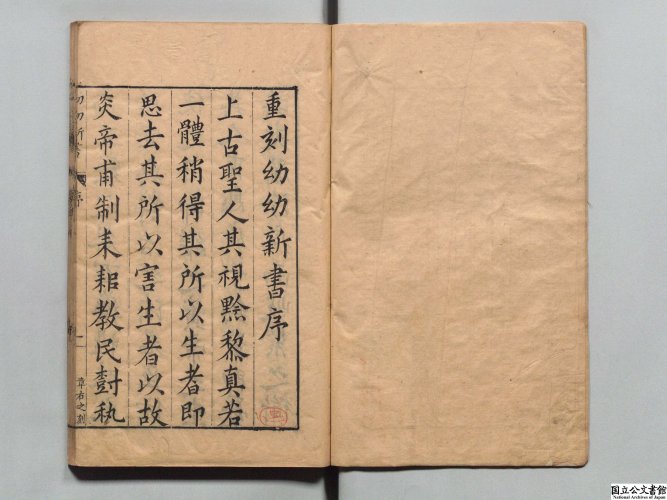 重刻幼幼新書序
上古聖人其視黔黎真若
一體稍得其所以生者即
思去其所以害生者以故
炎帝甫制耒耜教民樹秇
幼幼新書
序
章右之刻
国立公文書館
National Archives of Japan